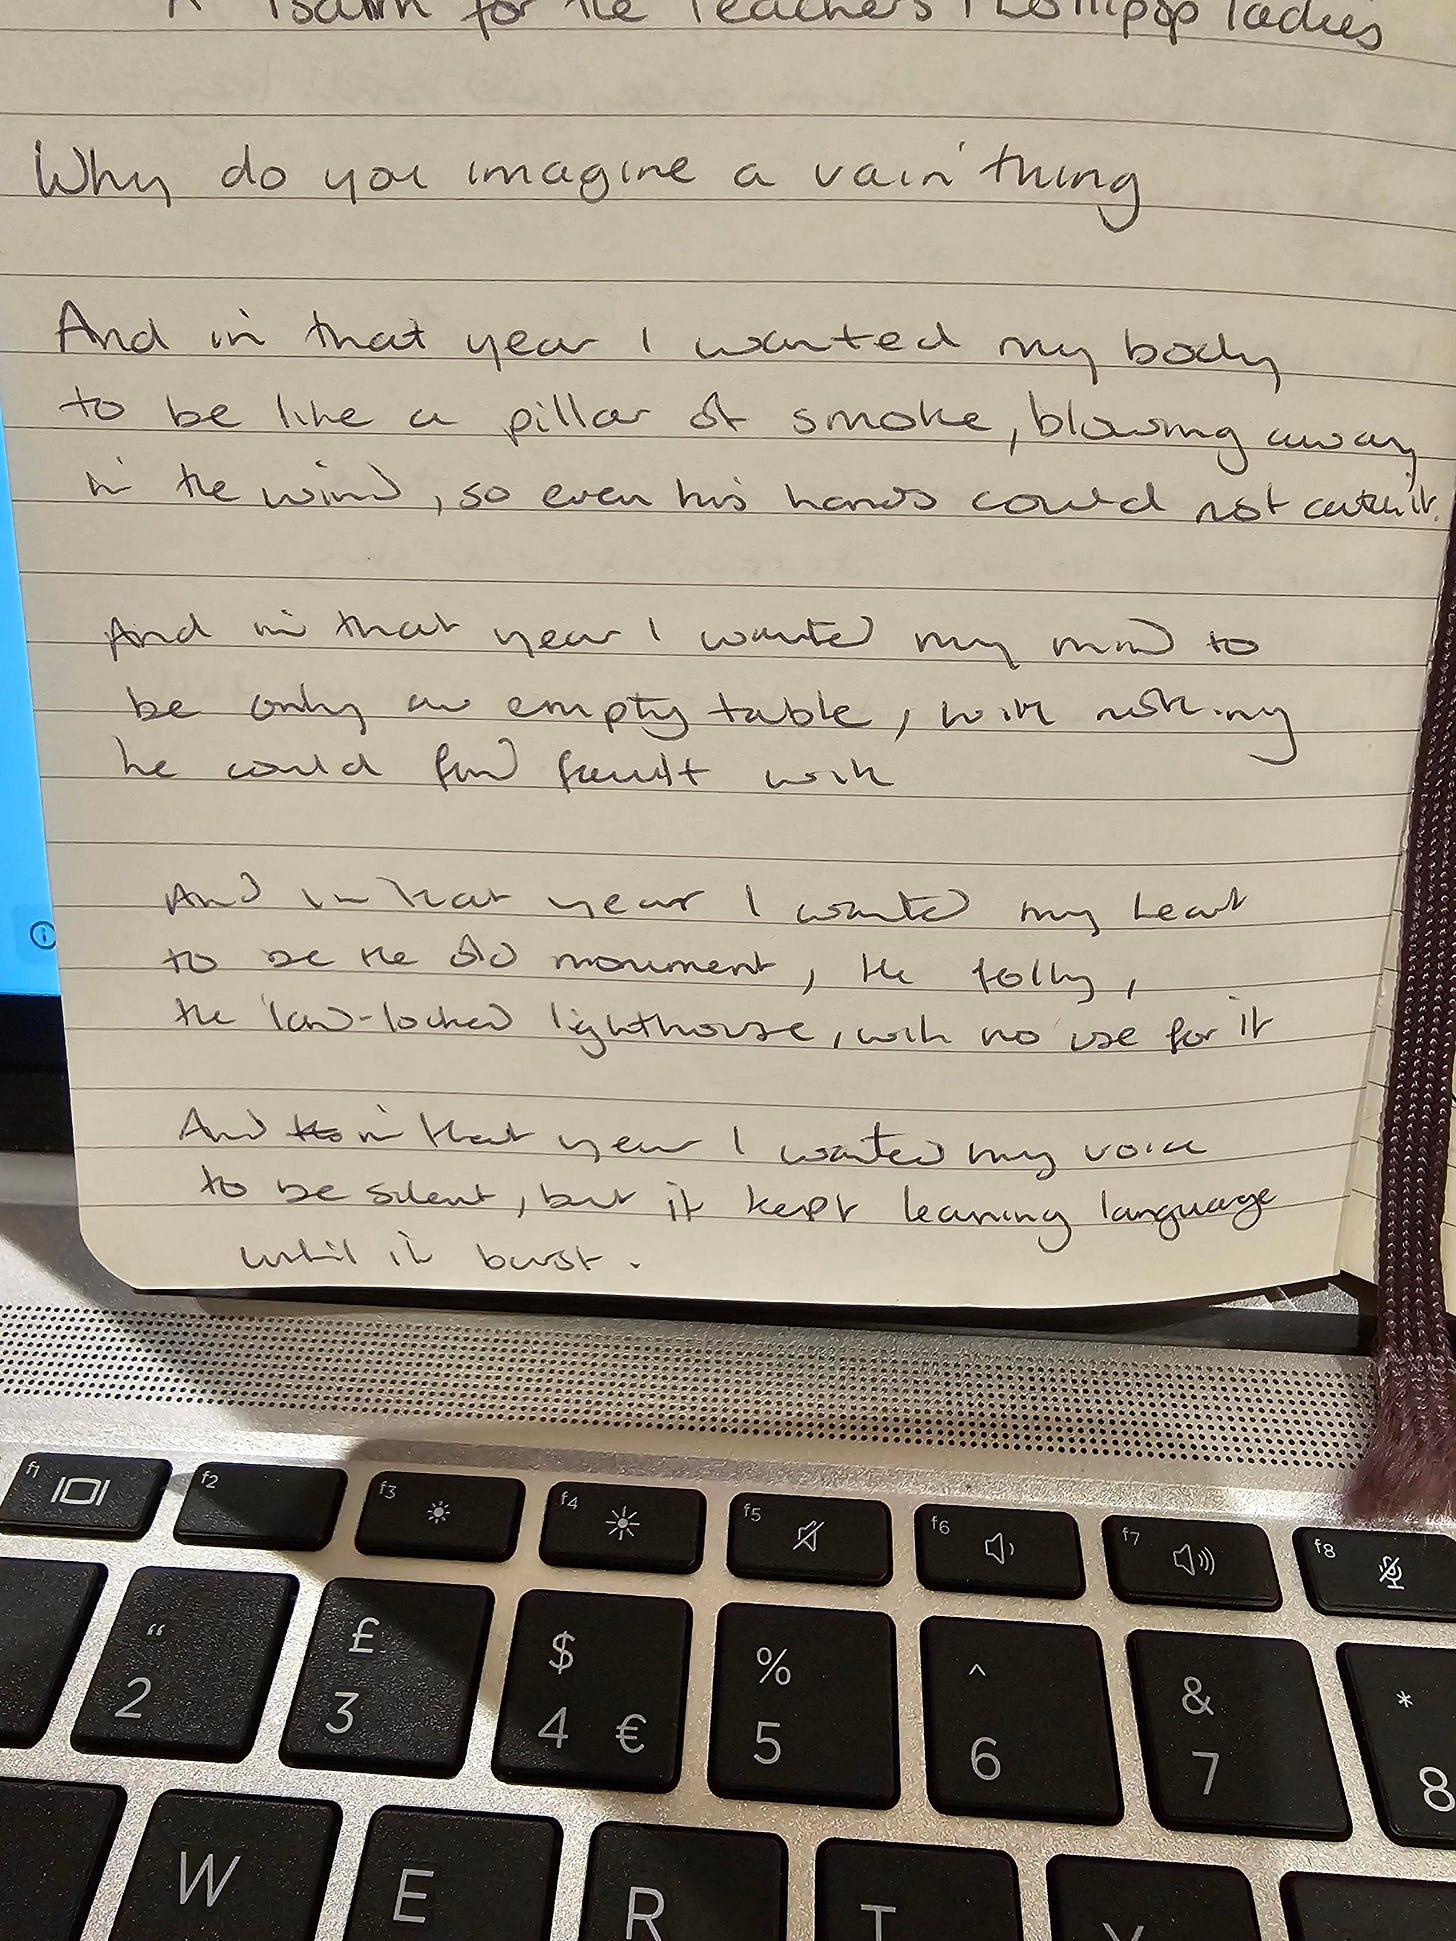 A Psalm for the Teachers + Lollipop ladies
Why do you imagine a vain thing
And in that year I wanted my body
to be like a pillar of smoke, blowing away
in the wind, so even his hands could not catch it.
And in that year I wanted my mind to
be only an empty table, with nothing
he could find fault with
And in that year I wanted my heart
to be the old monument, the folly,
the land-locked lighthouse, with no use for it
And in that year I wanted my voice
to be silent, but it kept learning language
until it burst.
f1 f2 f3 f4 f5 f6 f7 f8
" £ $ % ^ & *
2 3 4 € 5 6 7 8
W E R T Y